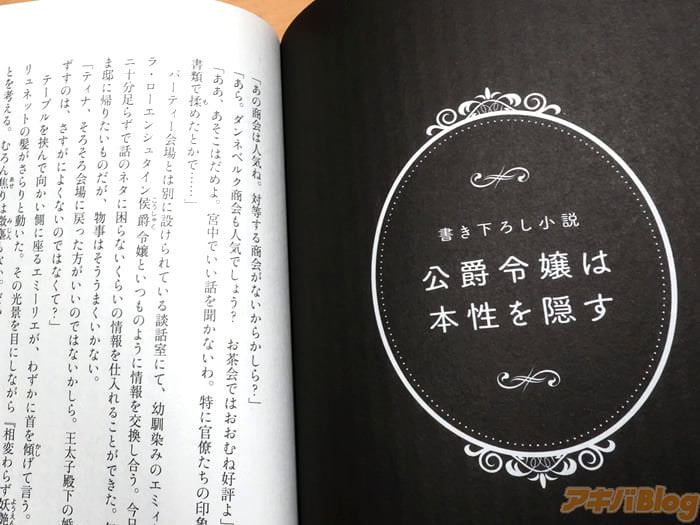 書き下ろし小説
公爵令嬢は
本性を隠す
「あの商会は人気ね。対等する商会がないからかしら？」
「あら。ダンネベルク商会も人気でしょう？　お茶会ではおおむね好評よ」
「ああ、あそこはだめよ。宮中でいい話を聞かないわ。特に官僚たちの印象
書類で揉めたとかで……」
パーティー会場とは別に設けられている談話室にて、幼馴染みのエミィ
ラ・ローエンシュタイン侯爵令嬢といつものように情報を交換し合う。今日
二十分足らずで話のネタに困らないくらいの情報を仕入れることができた。
ま邸に帰りたいものだが、物事はそううまくいかない。
「ティナ、そろそろ会場に戻った方がいいのではないかしら。王太子殿下の婚
ずすのは、さすがによくないのではなくて？」
テーブルを挟んで向かい側に座るエミーリエが、わずかに首を傾げて言う。
リュネットの髪がさらりと動いた。その光景を目にしながら『相変わらず妖艶
とを考える。むろん焦りは微塵
アキバBlog